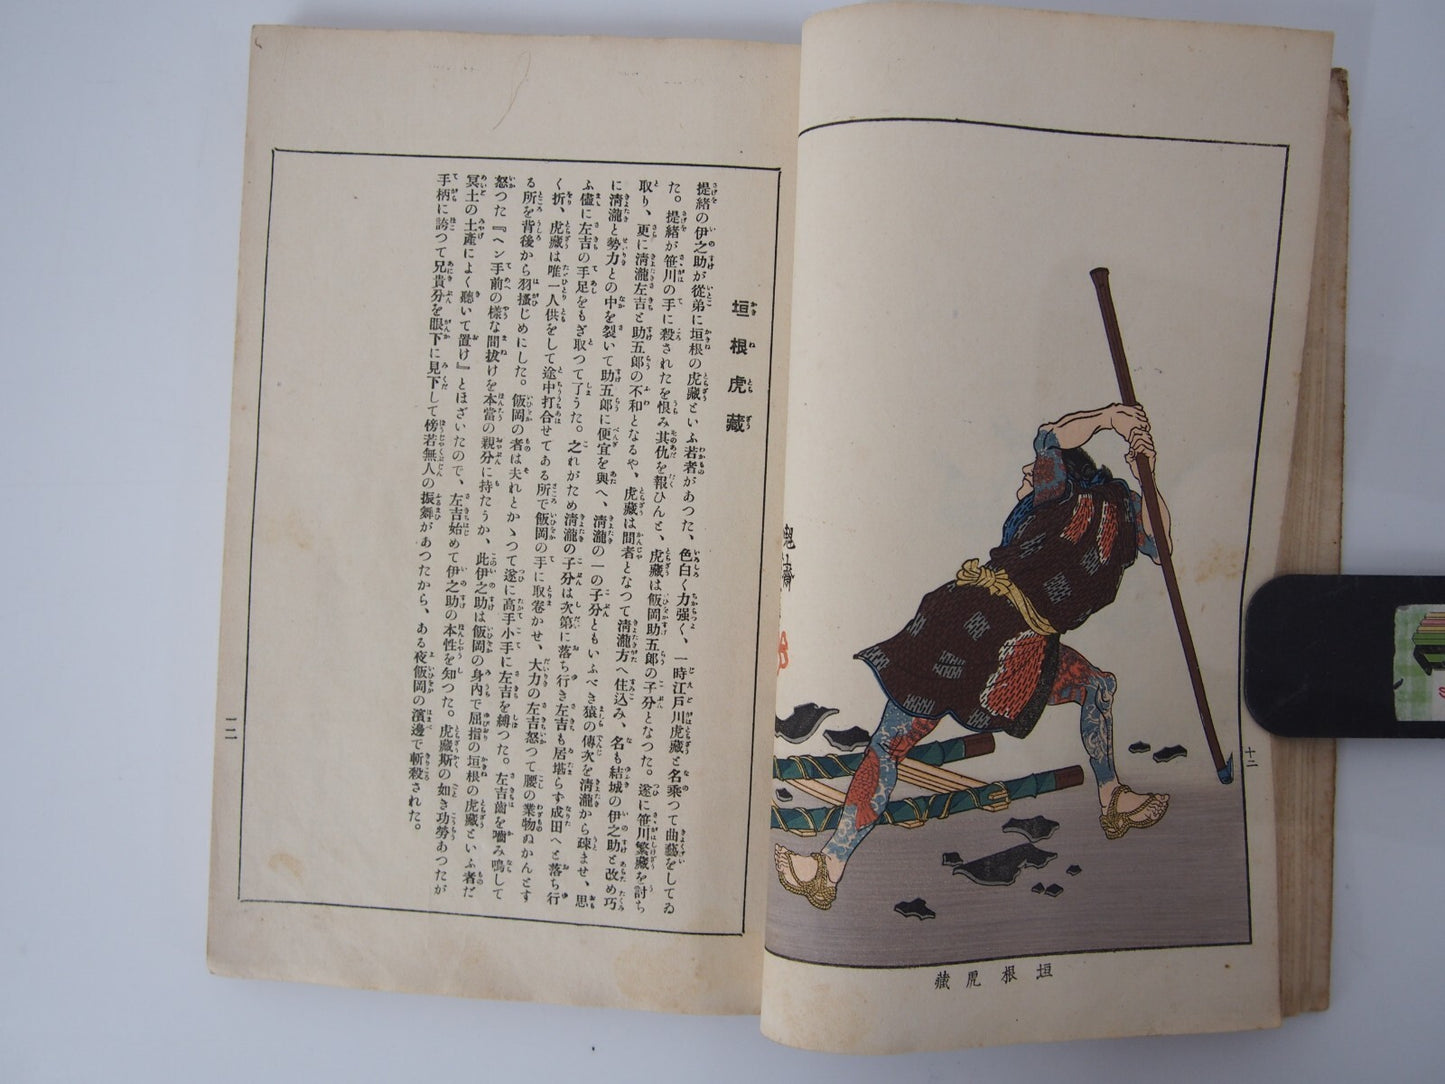 垣根虎藏
提緒の伊之助が從弟に垣根の虎藏といふ若者があつた、色白く力强く、一時江戸川虎藏と名乘つて曲藝をしてゐ
た。提緒が笹川の手に殺されたを恨み其仇を報ひんと、虎藏は飯岡助五郎の子分となつた。遂に笹川繁藏を討ち
取り、更に淸瀧左吉と助五郎の不和となるや、虎藏は間者となつて淸瀧方へ住込み、名も結城の伊之助と改め巧
に淸瀧と勢力との中を裂いて助五郎に便宜を與へ、淸瀧の一の子分ともいふべき猿の傳次を淸瀧から疎ませ、思
ふ儘に左吉の手足をもぎ取つて了うた。之れがため淸瀧の子分は次第に落ち行き左吉も居堪らず成田へと落ち行
く折、虎藏は唯一人供をして途中打合せてある所で飯岡の手に取卷かせ、大力の左吉怒つて腰の業物ぬかんとす
る所を背後から羽搔じめにした。飯岡の者は夫れとかゝつて遂に高手小手に左吉を縛つた。左吉齒を嚙み鳴して
怒つた『ヘン手前の樣な間拔けを本當の親分に持たうか、此伊之助は飯岡の身內で屈指の垣根の虎藏といふ者だ
冥土の土產によく聽いて置け』とほざいたので、左吉始めて伊之助の本性を知つた。虎藏斯の如き功勞あつたが
手柄に誇つて兄貴分を眼下に見下して傍若無人の振舞があつたから、ある夜飯岡の濱邊で斬殺された。
一二
十二
垣根虎藏